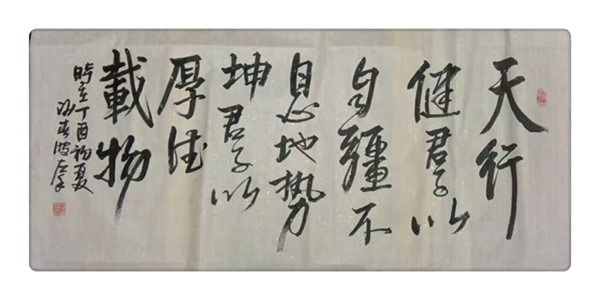 天行
健君子以
自疆不
息地势
坤君子以
厚德
載物
时在丁酉初夏